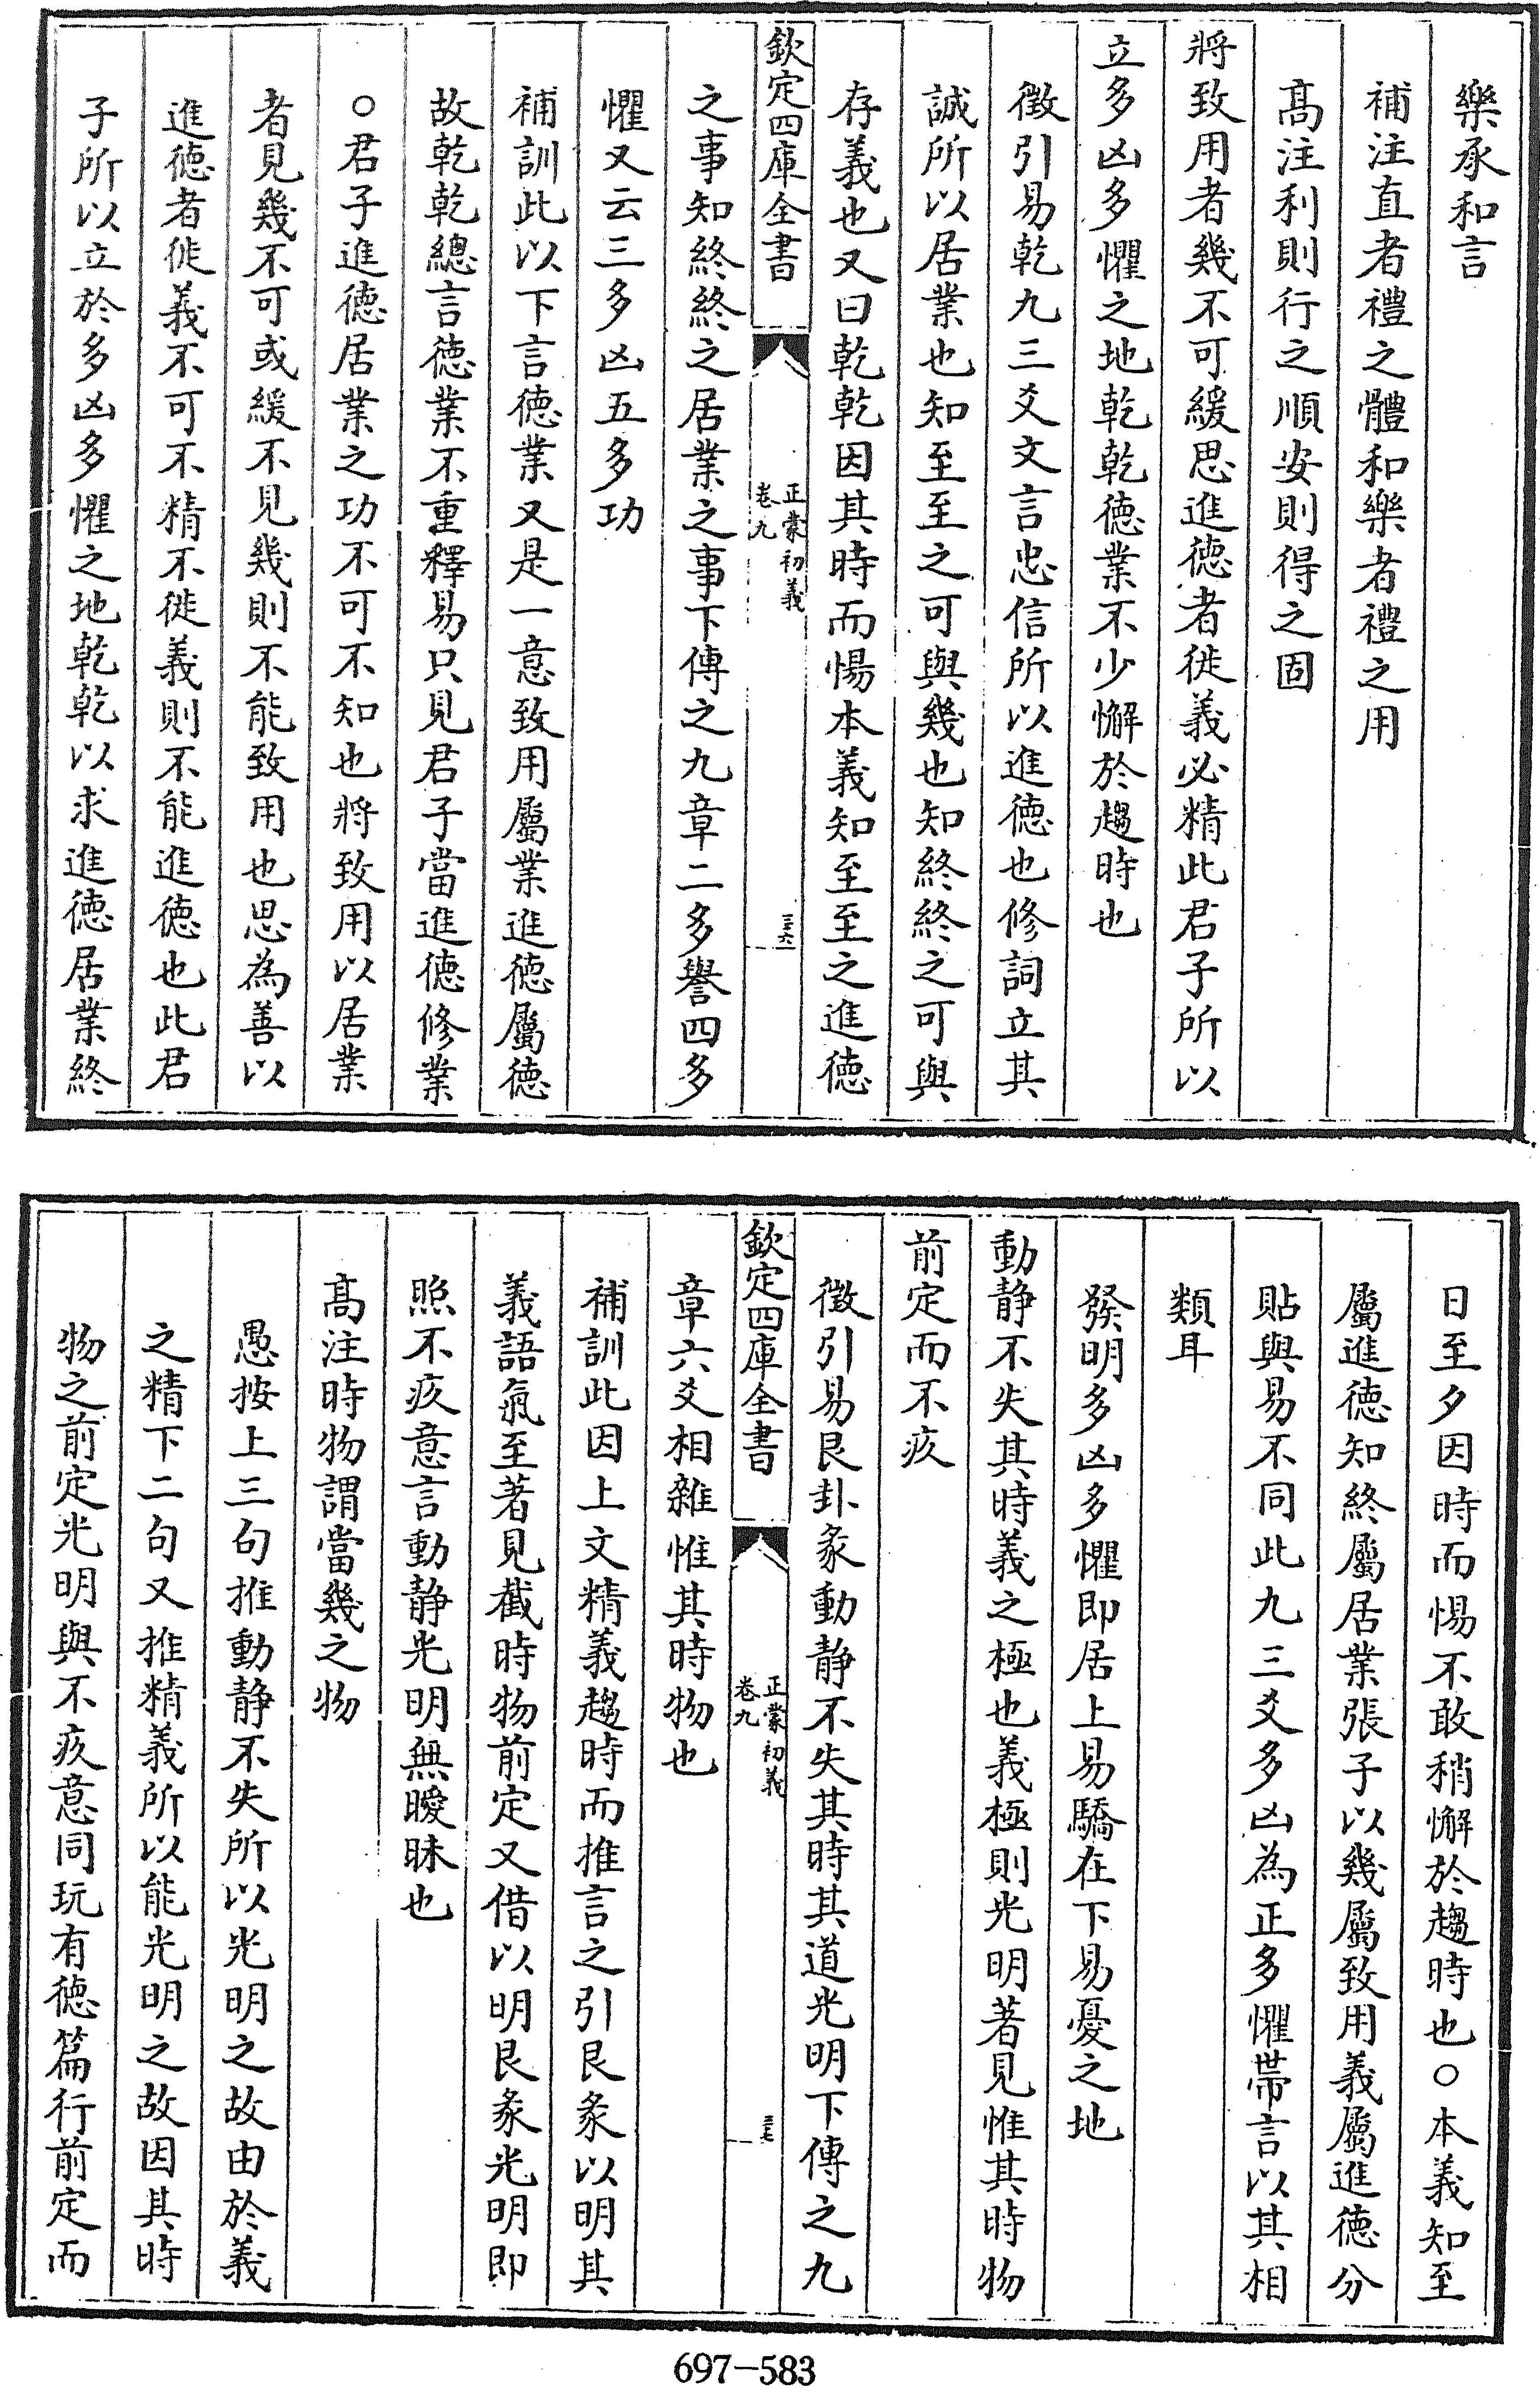 樂承和言
補注直者禮之體和樂者禮之用
髙注利則行之順安則得之固
將致用者幾不可緩思進徳者徙義必精此君子所以
立多凶多懼之地乾乾徳業不少懈於趨時也
徴引易乾九三爻文言忠信所以進徳也修詞立其
誠所以居業也知至至之可與幾也知終終之可與
存義也又曰乾乾因其時而惕本義知至至之進徳
欽定四庫全書
正蒙初義
卷九
三六
之事知終終之居業之事下傳之九章二多譽四多
懼又云三多凶五多功
補訓此以下言徳業又是一意致用屬業進徳屬徳
故乾乾總言徳業不重釋易只見君子當進徳修業
○君子進徳居業之功不可不知也將致用以居業
者見幾不可或緩不見幾則不能致用也思為善以
進徳者徙義不可不精不徙義則不能進徳也此君
子所以立於多凶多懼之地乾乾以求進徳居業終
日至夕因時而惕不敢稍懈於趨時也○本義知至
屬進徳知終屬居業張子以幾屬致用義屬進徳分
貼與易不同此九三爻多凶為正多懼帶言以其相
類耳
發明多凶多懼即居上易驕在下易憂之地
動静不失其時義之極也義極則光明著見惟其時物
前定而不疚
徴引易艮卦彖動静不失其時其道光明下傳之九
欽定四庫全書
正蒙初義
卷九
三七
章六爻相雜惟其時物也
補訓此因上文精義趨時而推言之引艮彖以明其
義語氣至著見截時物前定又借以明艮彖光明即
照不疚意言動静光明無曖昧也
髙注時物謂當幾之物
愚按上三句推動静不失所以光明之故由於義
之精下二句又推精義所以能光明之故因其時
物之前定光明與不疚意同玩有徳篇行前定而
697-583